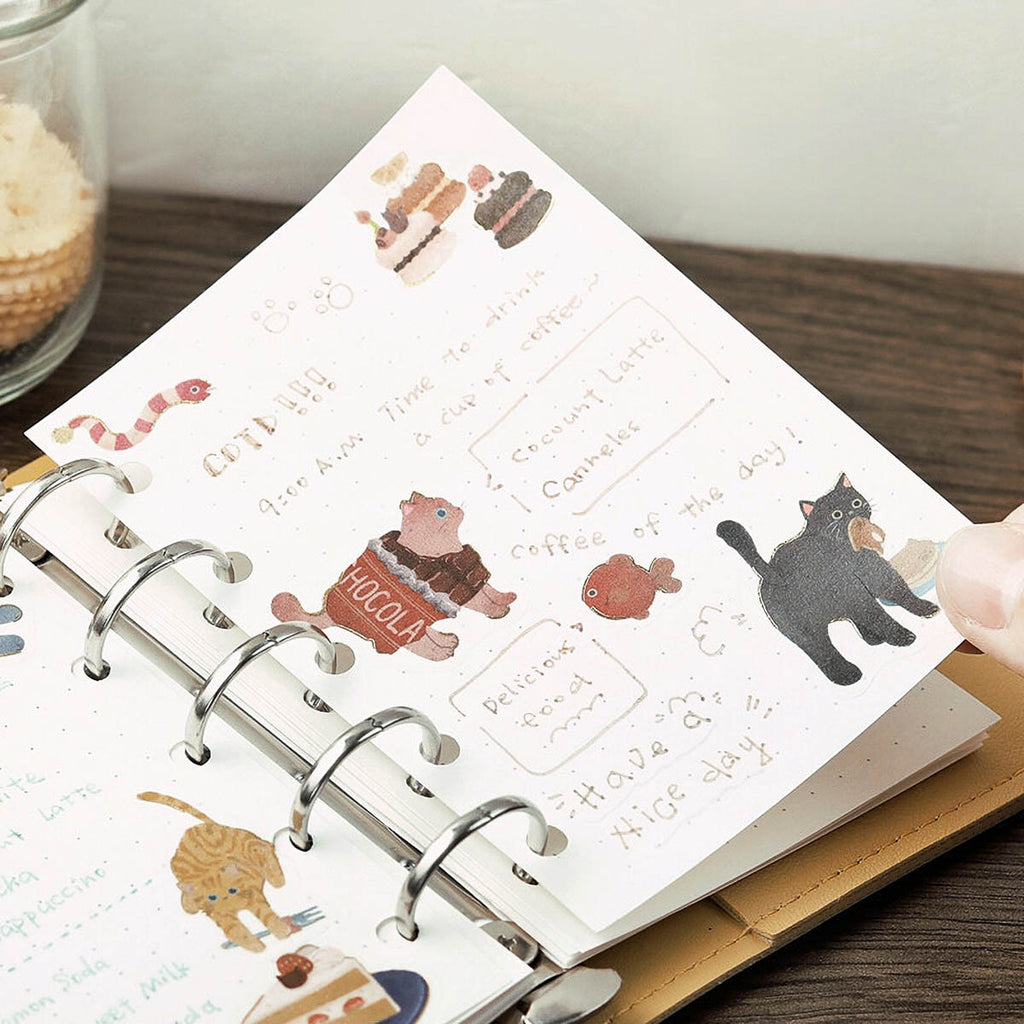 COTD !!!
9:00 A.M Time to drink
a cup of coffee~
Cocount Latte
Canneles
coffee of the day!
HOCOLA
Delicious
food
Have a
Nice day
Latte
appuccino
Soda
Milk